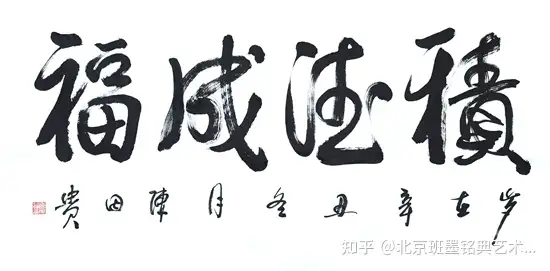 積德成福
歲在辛丑冬月陳田貴
知乎 @北京班墨铭典艺术...